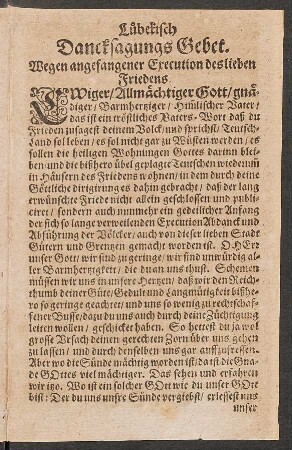 Lübekisch
Dancksagungs Gebet.
Wegen angefangener Execution des lieben
Friedens.
EWiger/Allmächtiger Gott/gnä-
diger/Barmhertziger/Himlischer Vater/
das ist ein tröstliches Vaters-Wort daß du
Frieden zusagest deinem Volck/und sprichst/Teutsch-
land sol leben/es sol nicht gar zu Wüsten werden/es
sollen die heiligen Wohnungen Gottes darinn blei-
ben und die bißhero übel geplagte Teutschen wiederumb
in Häusern des Friedens wohnen/in dem durch deine
Göttliche dirigirung es dahin gebracht/daß der lang
erwünschte Friede nicht allein geschlossen und publi-
ciret/sondern auch nunmehr ein gedeilicher Anfang
der sich so lange verweilenden Execution Abdanck und
Abführung der Völcker/auch von dieser lieben Stadt
Gütern und Grenzen gemacht worden ist. O HErr
unser Gott/wir sind zu geringe/wir sind unwürdig al-
ler Barmhertzigkeit/die du an uns thust. Schemen
müssen wir uns in unsere Hertzen/daß wir den Reich-
thumb deiner Güte/Gedult und Langmütigkeit bißhe-
ro so geringe geachtet/und uns so wenig zu rechtschaf-
fener Busse/dazu du uns auch durch deine Züchtigung
leiten wollen/geschicket haben. So hettest du ja wol
grosse Vrsach deinen gerechten Zorn über uns gehen
zu lassen/und durch denselben uns gar auffzureiben.
Aber wo die Sünde mächtig worden ist/da ist die Gna-
de GOttes viel mächtiger. Das sehen und erfahren
wir itzo. Wo ist ein solcher GOtt wie du unser GOtt
bist: Der du uns unsre Sünde vergibst/erlessest uns
unser